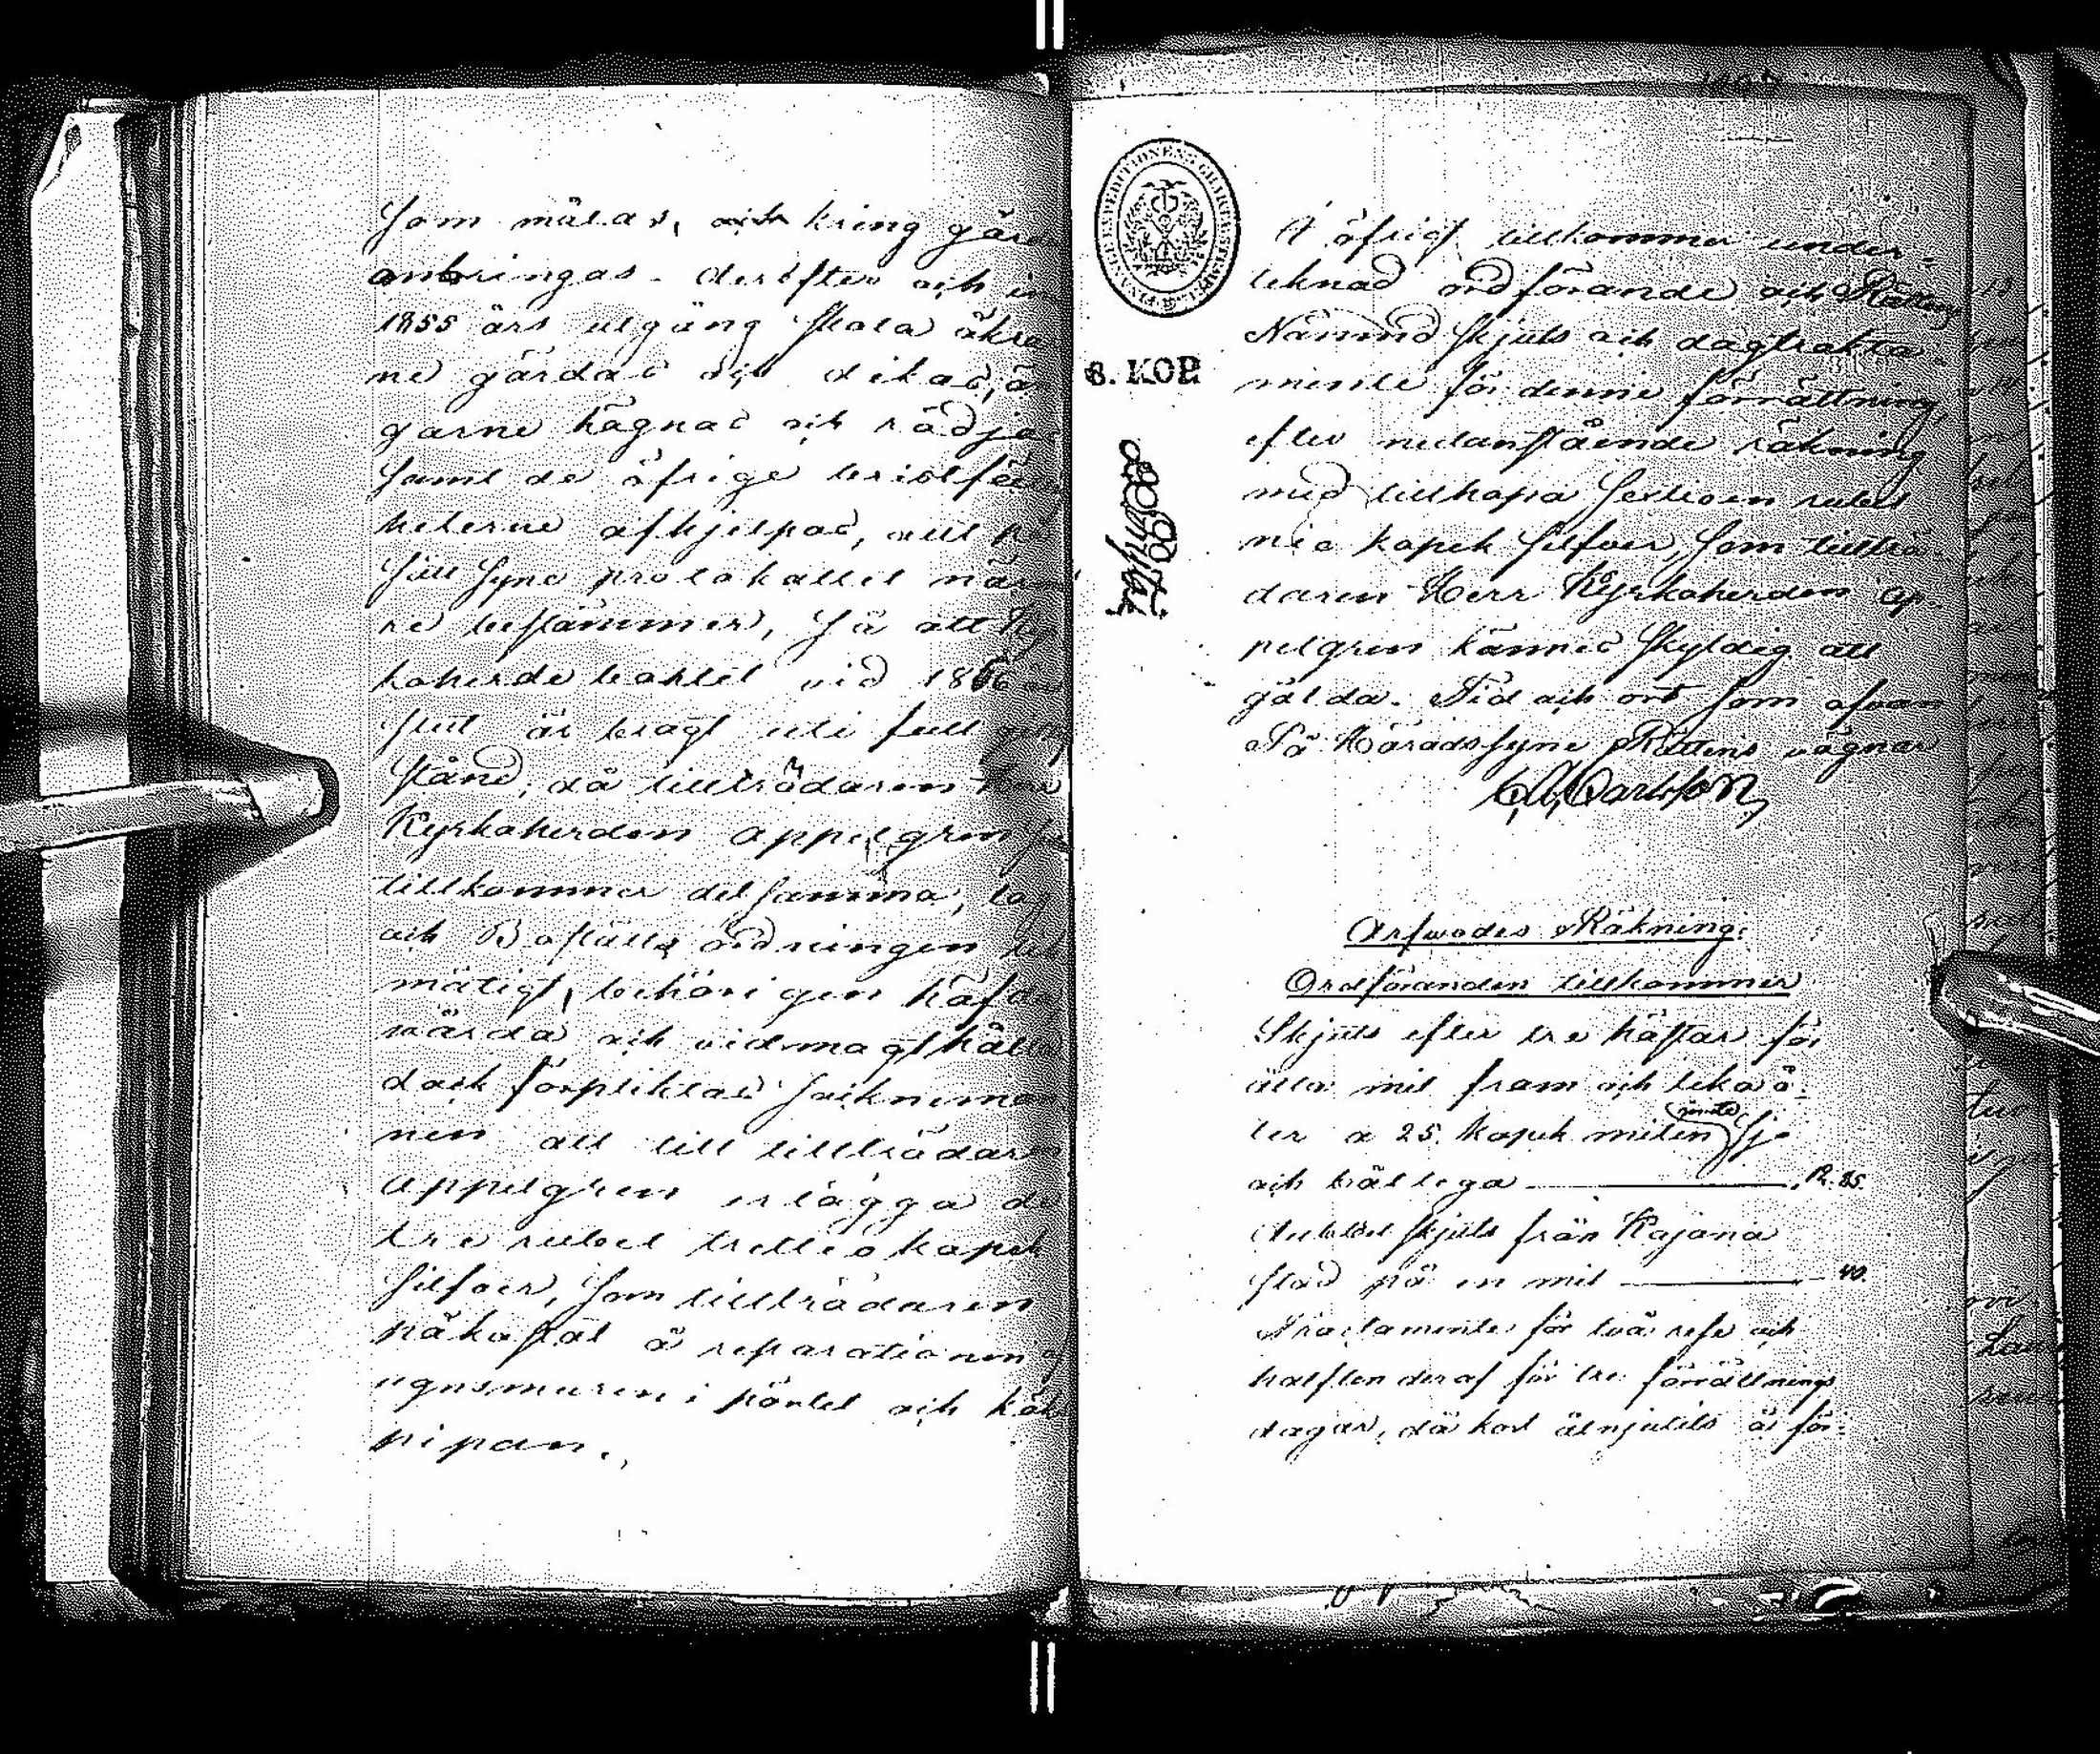 som målas, och kring gär
anbringas. derefter och in
1855 års utgång skola åkra
ne gärdas och dikas, än
garne hägnas och rödjas
samt de öfrige bristfäl
heterne afhjelpas, allt på
sätt syne protokollet närm
re bestämmer, så att Kyr
koherde bohlet vid 1856 år
slut är bragt uti full
stånd, då tillträdaren Herr
Kyrkoherden Appelgren
tillkommer detsamma, lag
och Boställs ordningen lik
mätigt, behörigen häfd
wårda och vidmagthålla
dock förpliktas Sockneman
nen att till tillträdaren
Appelgren erlägga de
tre rubel trettio kopek
silfver, som tillträdaren
påkostat å reparationen af
ugnsmuren i pörtet och kök
pipan.
FINANCE EXPEDITIONEN CHARTÆ SIGILL
8. KOP.
I öfrigt tillkommer under-
teknad ordförande och
Nämnd skjuts och dagtrakta-
mente för denne förrättning,
efter nedanstående räkning
med tillhopa sextioen rubel
nio kopek silfver, som tillträ-
daren Herr Kyrkoherden Ap-
pelgren kännes skyldig att
gälda. Tid och ort som ofvan
På Häradssyne Rättens vägnar
Carlsson
Arfwodes Räkning:
Ordföranden tillkommer
Skjuts efter tre hästar för
åtta mil fram och lika å-
ter a 25. kopek milen jemte sj
och båtlega R. 85.
Dubbel skjuts från Kajana
stad på en mil 40.
Tractamente för två rese och
halften deraf för tre förrättnings
dagar, då kost åtnjutits är för-